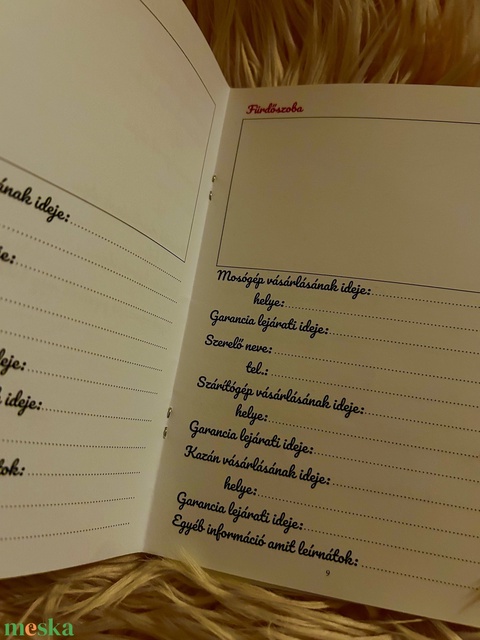 ának ideje:
e:
eje:
ideje:
tok:
Fürdőszoba
Mosógép vásárlásának ideje:
helye:
Garancia lejárati ideje:
Szerelő neve:
tel.:
Szárítógép vásárlásának ideje:
helye:
Garancia lejárati ideje:
Kazán vásárlásának ideje:
helye:
Garancia lejárati ideje:
Egyéb információ amit leírnátok:
9
meska